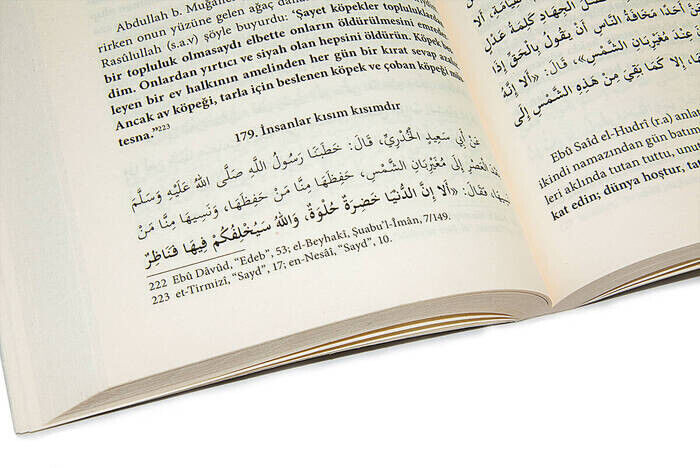 Abdullah b. Muğaffel
rirken onun yüzüne gelen ağaç da
Rasûlullah (s.a.v) şöyle buyurdu: "Şayet köpekler topluluklarda
bir topluluk olmasaydı elbette onların öldürülmesini emrede
dim. Onlardan yırtıcı ve siyah olan hepsini öldürün. Köpek be
leyen bir ev halkının amelinden her gün bir kırat sevap azal
Ancak av köpeği, tarla için beslenen köpek ve çoban köpeği mü
tesna."223
179. İnsanlar kısım kısımdır
عَنْ أَبِي سَعِيدٍ الْخُدْرِيِّ، قَالَ: خَطَبَنَا رَسُولُ اللَّهِ صَلَّى اللهُ عَلَيْهِ وَسَلَّمَ
الْعَصْرِ إِلَى مُغَيْرِبَانِ الشَّمْسِ، حَفِظَهَا مِنَّا مَنْ حَفِظَهَا، وَنَسِيَهَا مِنَّا مَنْ
فَقَالَ: «أَلَا إِنَّ الدُّنْيَا خَضِرَةٌ حُلْوَةٌ، وَاللهُ سَيُخْلِفُكُمْ فِيهَا فَنَاظِرٌ
222 Ebû Dâvûd, "Edeb", 53; el-Beyhakî, Şuabu'l-Îmân, 7/149.
223 et-Tirmizî, "Sayd", 17; en-Nesâî, "Sayd", 10.
الْجِهَادِ كَلِمَةُ عَدْلٍ
أَحَدًا مَخَافَةُ النَّاسِ أَنْ يَقُولَ بِالْحَقِّ إِذَا
عِنْدَ مُغَيْرِبَانِ الشَّمْسِ»، قَالَ: «أَلَا إِنَّهُ
إِلَّا كَمَا بَقِيَ مِنْ هَذِهِ الشَّمْسِ إِلَى
Ebû Said el-Hudrî (r.a) anlat
ikindi namazından gün batım
leri aklında tutan tuttu, unu
kat edin; dünya hoştur, tat